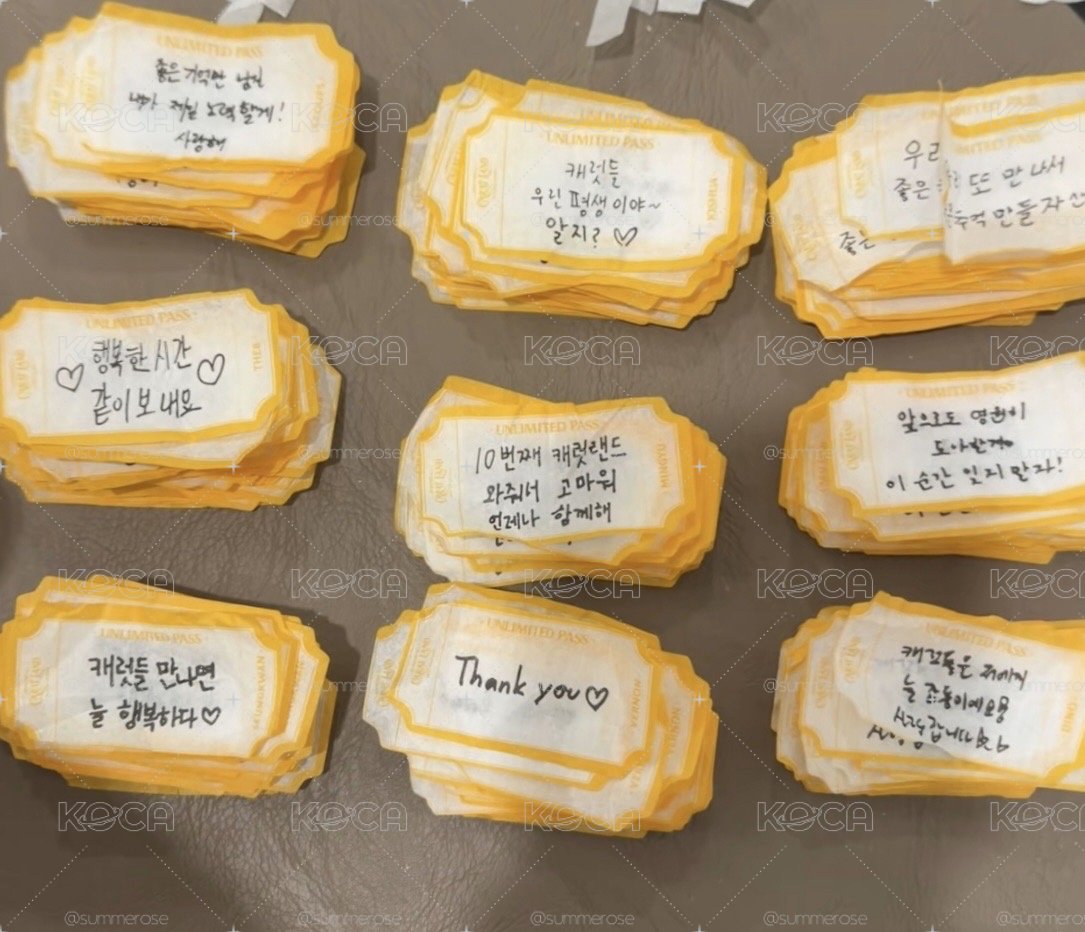 UNLIMITED PASS
좋은 기억만 남길
내가 제일 노력할게!
사랑해
UNLIMITED PASS
캐럿들
우린 평생이야~
알지? ♡
JOSHUA
UNLIMITED PASS
우리
좋은
또 만나서
추억 만들자
좋은
UNLIMITED PASS
♡ 행복한 시간 ♡
같이 보내요
THE8
UNLIMITED PASS
10번째 캐럿랜드
와줘서 고마워
언제나 함께해
MINGYU
UNLIMITED PASS
앞으로도 영원히
이 순간 잊지 말자!
UNLIMITED PASS
캐럿들 만나면
늘 행복하다♡
SEUNGKWAN
UNLIMITED PASS
Thank you♡
VERNON
UNLIMITED PASS
캐럿들은 저에게
늘 감동이에요
사랑합니다
DINO
KOCA
@summerose